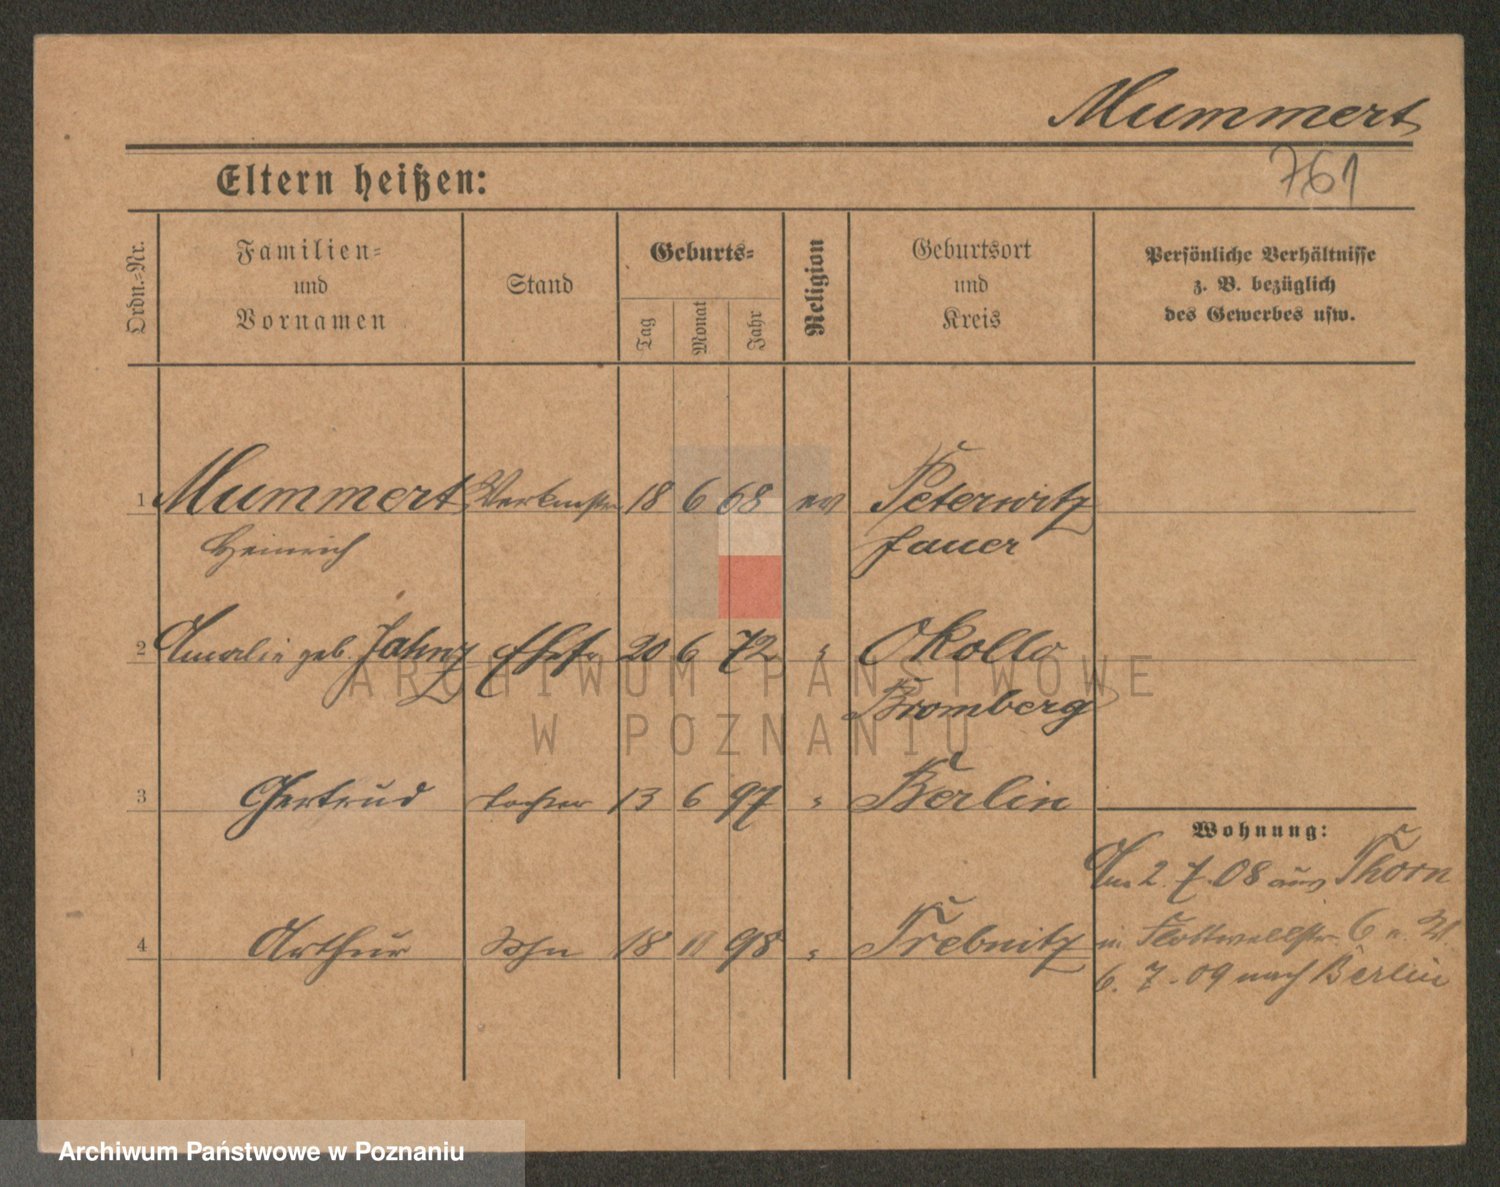 Mummert
761
Eltern heißen:
Ordn.-Nr.
Familien-
und
Vornamen
Stand
Geburts-
Tag
Monat
Jahr
Religion
Geburtsort
und
Kreis
Persönliche Verhältnisse
z. B. bezüglich
des Gewerbes usw.
1 Mummert 18 6 68 ev Peterwitz
Heinrich Jauer
2 Amalie geb. Jahnz Ehefr 20 6 72 " Okollo
Bromberg
3 Gertrud Tochter 13 6 97 " Berlin
Wohnung:
Am 2. 7. 08 aus Thorn
4 Arthur Sohn 18 11 98 " Trebnitz
in Flottwellstr. 6
6. 7. 09 nach Berlin
ARCHIWUM PAŃSTWOWE
W POZNANIU
Archiwum Państwowe w Poznaniu